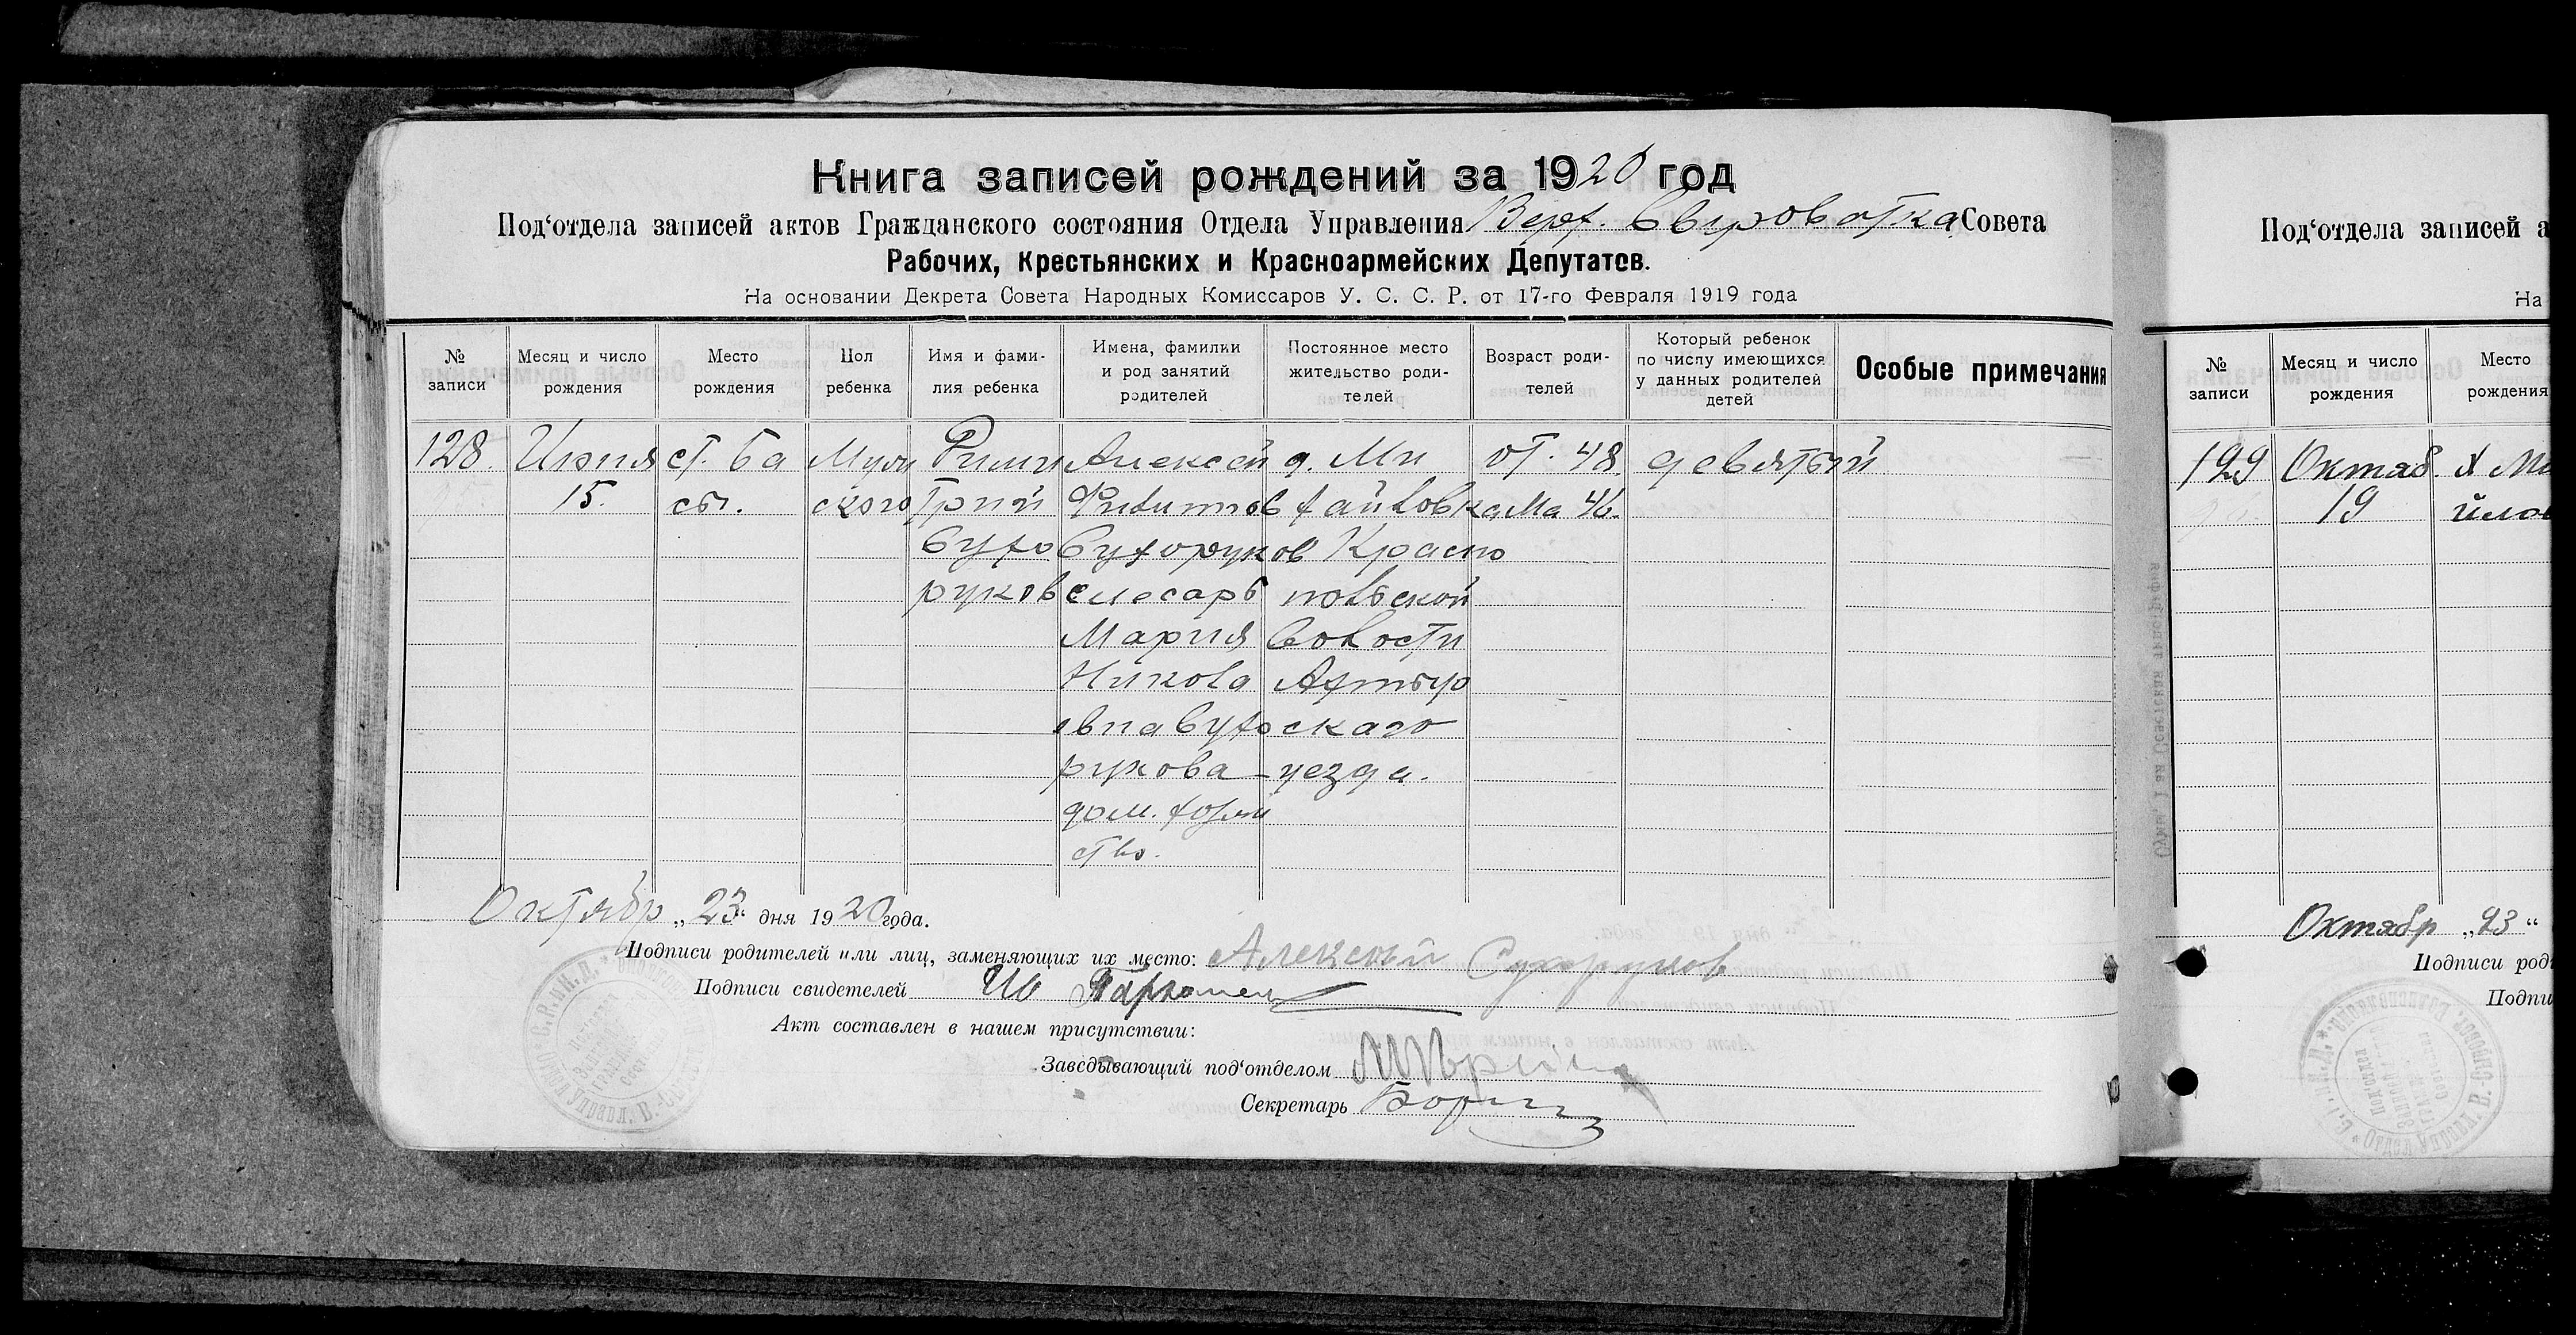 Книга записей рождений за 1920 год
Под‘отдела записей актов Гражданского состояния Отдела Управления Верх. Сыроватка Совета
Рабочих, Крестьянских и Красноармейских Депутатов.
На основании Декрета Совета Народных Комиссаров У. С. С. Р. от 17-го Февраля 1919 года
№ записи
Месяц и число рождения
Место рождения
Пол ребенка
Имя и фами-
лия ребенка
Имена, фамилии
и род занятий
родителей
Постоянное место
жительство роди-
телей
Возраст роди-
телей
Который ребенок
по числу имеющихся
у данных родителей
детей
Особые примечания
128.
15.
ст. Ба
сы.
Муж
ского
трий
Сухо
руков
Алексей
Сухоруков
слесарь
Мария
Никола
евна Сухо
рукова
дом. хозяй
ство.
д. Ми
хайловка
Красно
польской
волости
Ахтыр
скаго
уезда.
от. 48.
Ма 46.
девятый
Октябр „23“ дня 1920 года.
Подписи родителей или лиц, заменяющих их место: Алексей Сухоруков
Подписи свидетелей
Акт составлен в нашем присутствии:
Заведывающий под‘отделом
Секретарь
Под‘отдела записей а
На
№ записи
Месяц и число рождения
Место рождения
129
Октяб.
19
х Ми
йлов
Октябр „23“
Подписи род
Подпи